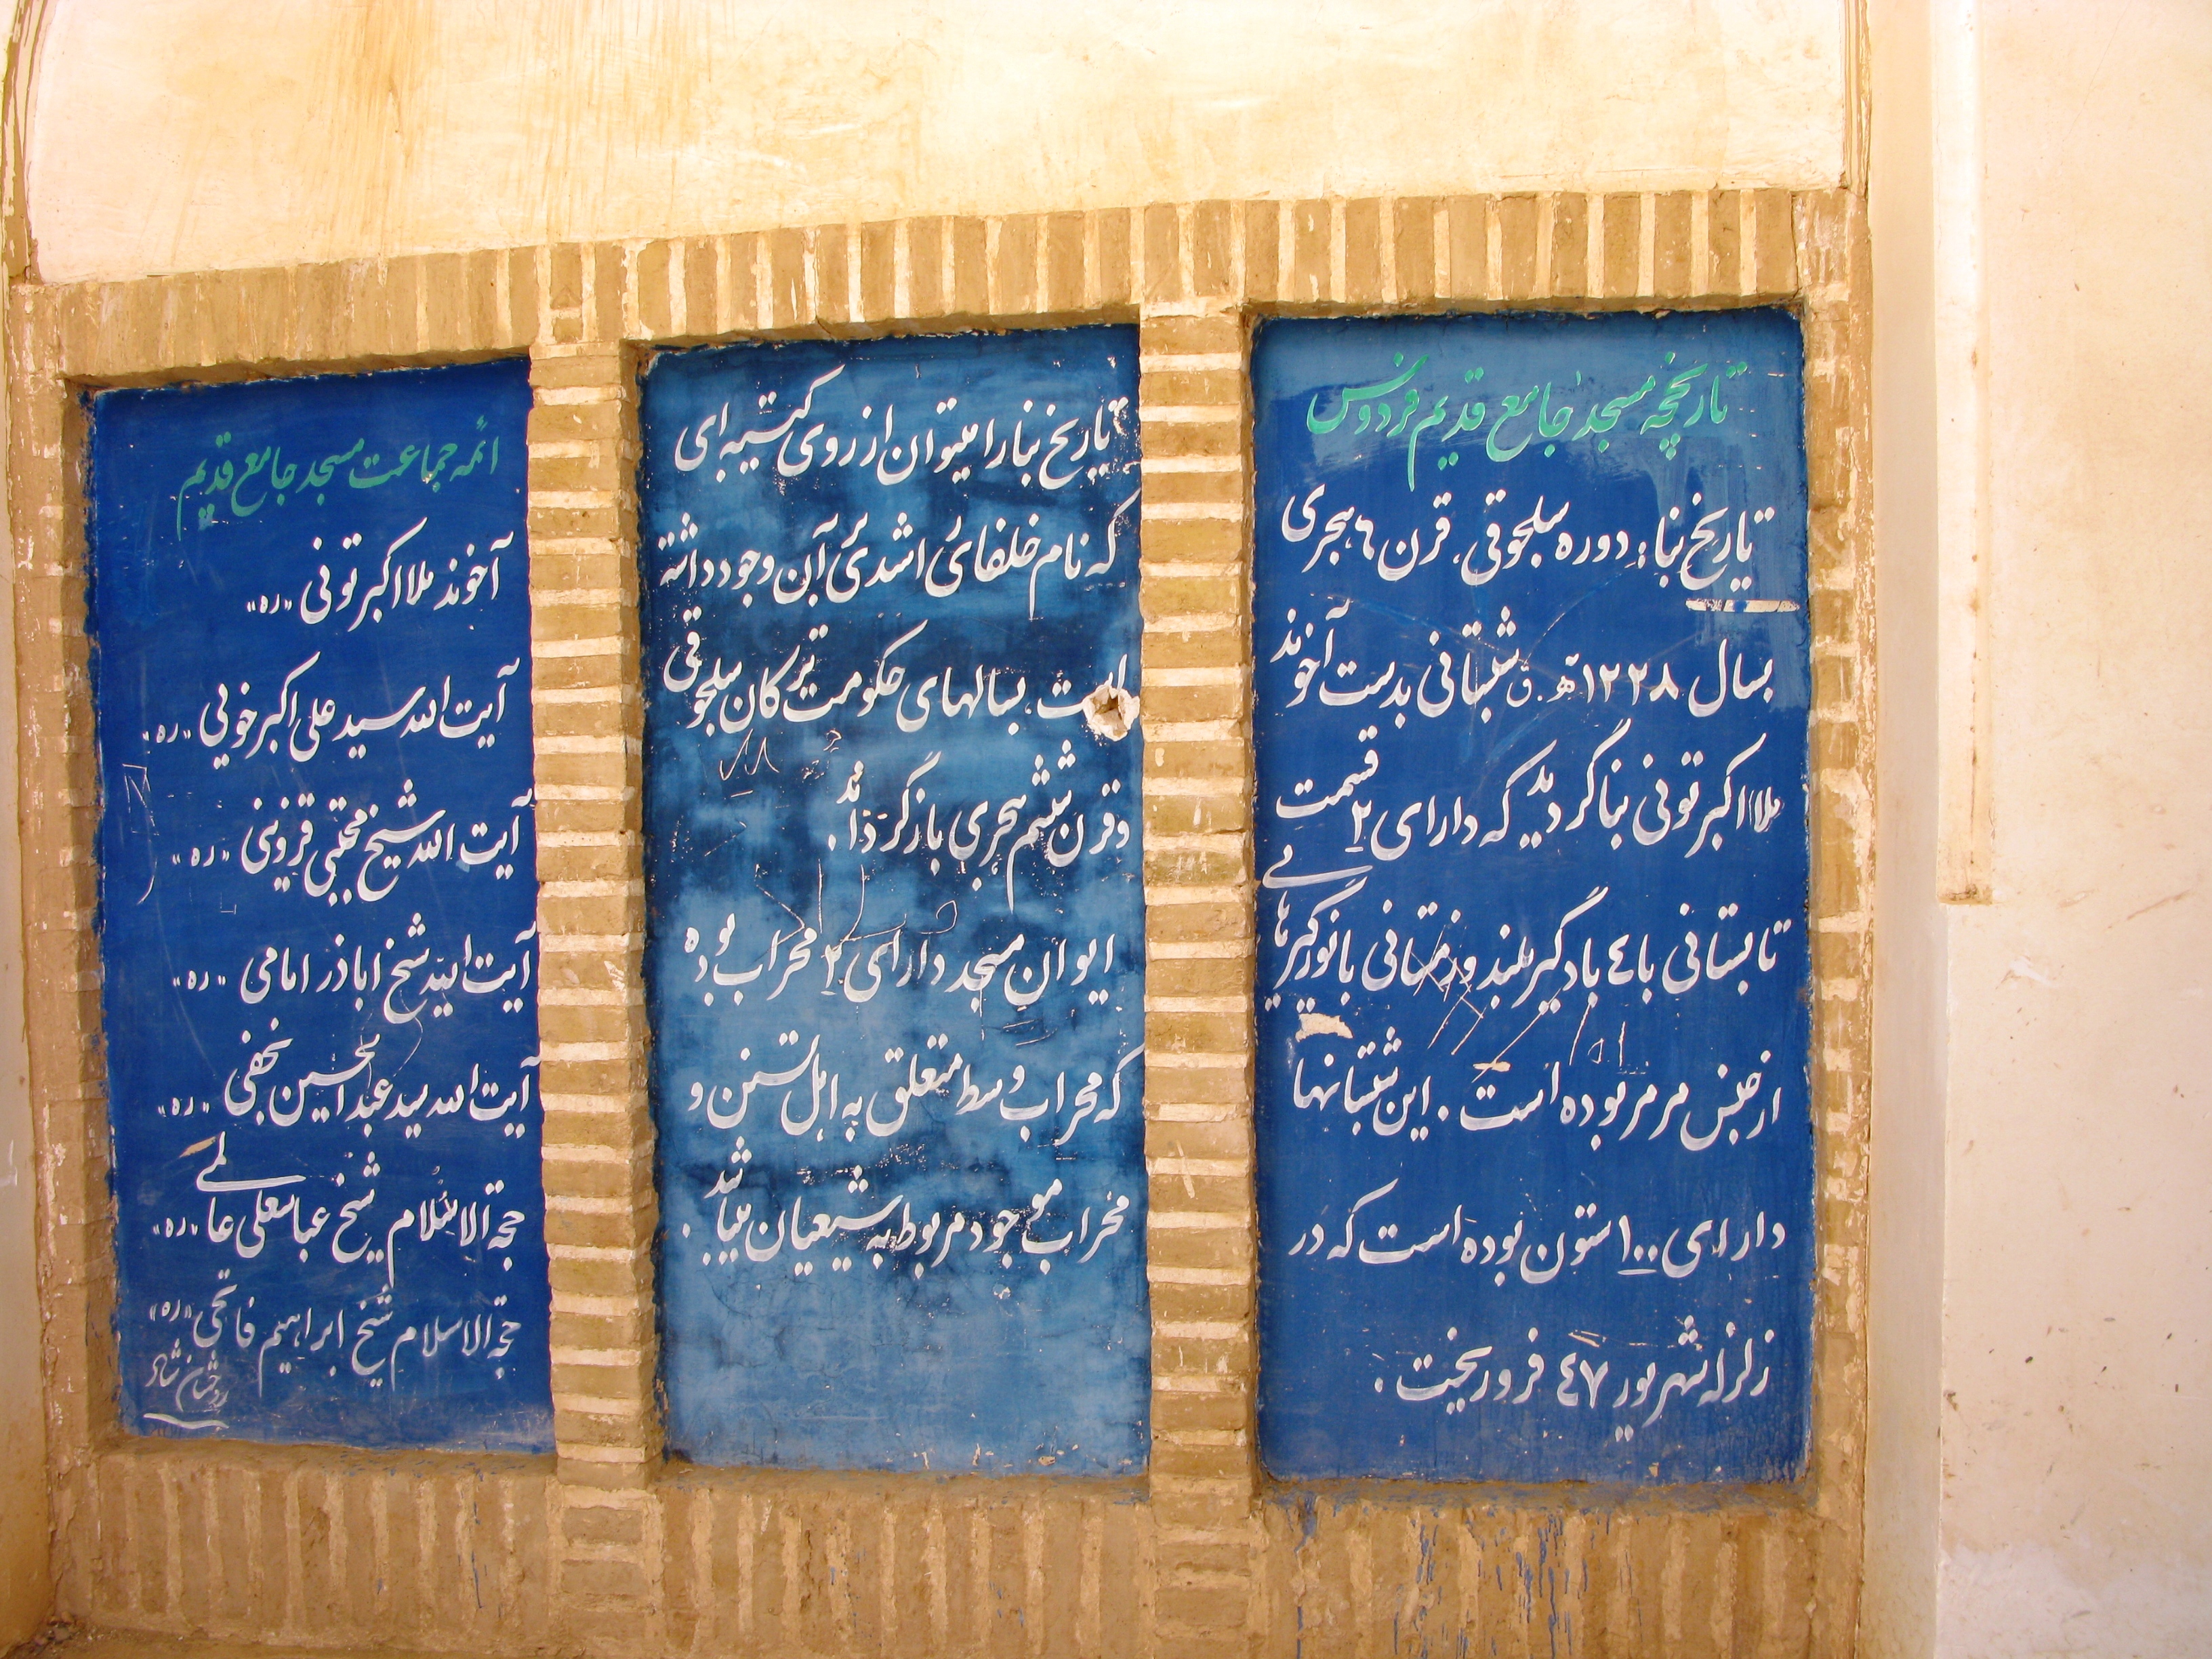 تاریخچه مسجد جامع قدیم فردوس
تاریخ بنا: دوره سلجوقی، قرن ٦ هجری
بسال ۱۲۲۸ ه.ق شبستانی بدست آخوند
ملا اکبر تونی بنا گردید که دارای ۲ قسمت
تابستانی با ٤ بادگیر بلند و زمستانی با نورگیرهایی
از جنس مرمر بوده است. این شبستانها
دارای ۱۰۰ ستون بوده است که در
زلزله شهریور ٤۷ فرو ریخت.
تاریخ بنا را میتوان از روی کتیبه ای
که نام خلفای راشدی بر آن وجود داشته
است، بسالهای حکومت ترکان سلجوقی
و قرن ششم هجری بازگرداند.
ایوان مسجد دارای ۲ محراب بوده
که محراب وسط متعلق به اهل تسنن و
محراب موجود مربوط به شیعیان میباشد.
ائمه جماعت مسجد جامع قدیم
آخوند ملا اکبر تونی «ره»
آیت الله سید علی اکبر خویی «ره»
آیت الله شیخ مجتبی قزوینی «ره»
آیت الله شیخ اباذر امامی «ره»
آیت الله سید عبدالحسین نجفی «ره»
حجة الاسلام شیخ عباسعلی عالمی «ره»
حجة الاسلام شیخ ابراهیم فاتحی «ره»
روحشان شاد